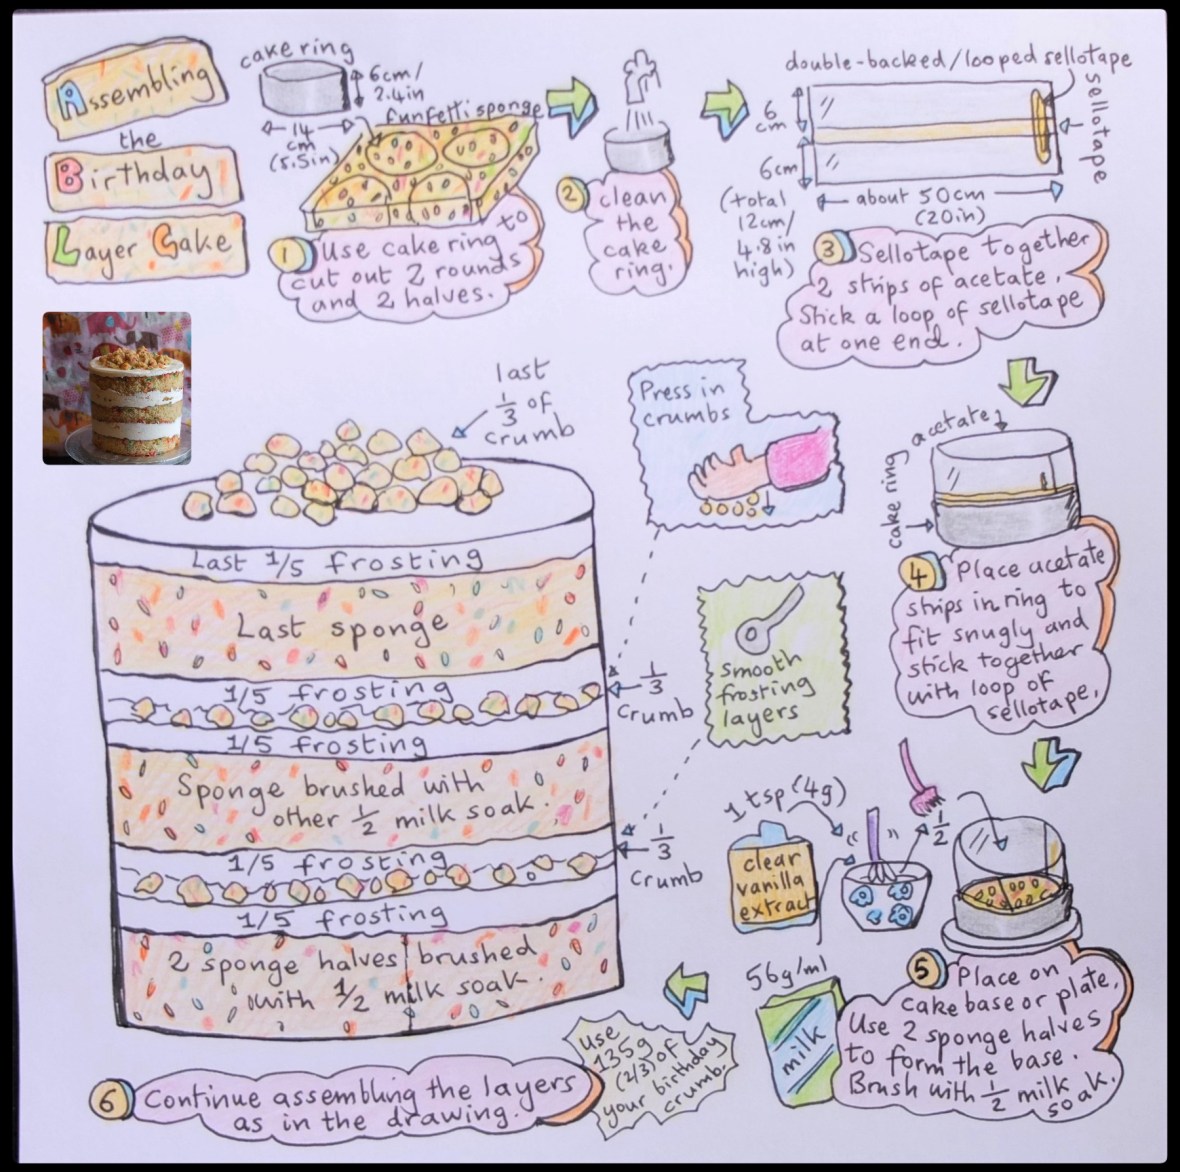 Assembling
the
Birthday
Layer Cake
cake ring
6cm/
2.4in
14
cm
(5.5in)
funfetti sponge
1 Use cake ring to
cut out 2 rounds
and 2 halves.
2 clean
the
cake
ring.
double-backed/looped sellotape
sellotape
6
cm
6cm
(total
12cm/
4.8in
high)
about 50cm
(20in)
3 Sellotape together
2 strips of acetate.
Stick a loop of sellotape
at one end.
acetate
cake ring
4 Place acetate
strips in ring to
fit snugly and
stick together
with loop of
sellotape.
1 tsp (4g)
clear
vanilla
extract
1/2
56g/ml
milk
5 Place on
cake base or plate.
Use 2 sponge halves
to form the base.
Brush with 1/2 milk
soak.
Use
135g
(2/3) of
your birthday
crumb.
6 Continue assembling the layers
as in the drawing.
last
1/3 of
crumb
Press in
crumbs
smooth
frosting
layers
Last 1/5 frosting
Last sponge
1/5 frosting
1/3
Crumb
1/5 frosting
Sponge brushed with
other 1/2 milk soak.
1/5 frosting
1/3
Crumb
1/5 frosting
2 sponge halves brushed
with 1/2 milk soak.